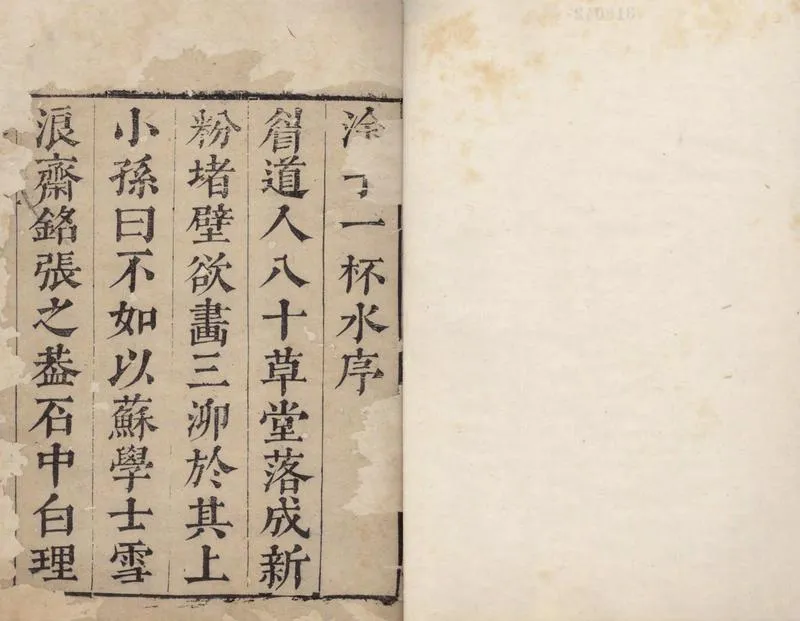 一杯水序
睂道人八十草堂落成新
粉堵壁欲畫三泖於其上
小孫曰不如以蘇學士雪
浪齋銘張之葢石中白理